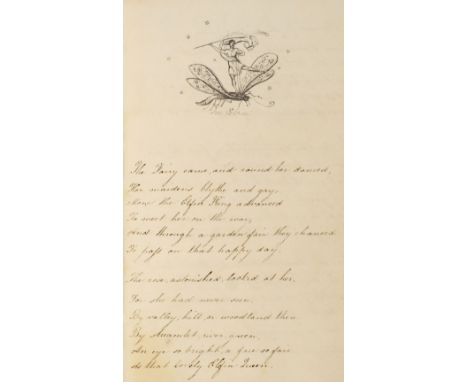 The Fairy came, and round her danced,
Her maidens blythe and gay,
Now the Elfin King advanced
To meet her on the way,
And through a garden fair they chanced
To pass on that happy day
The rose, astonished, looked at her,
For she had never seen,
By valley, hill, or woodland then
By streamlet, ever anon,
An eye so bright, a face so fair
As that lovely Elfin Queen.